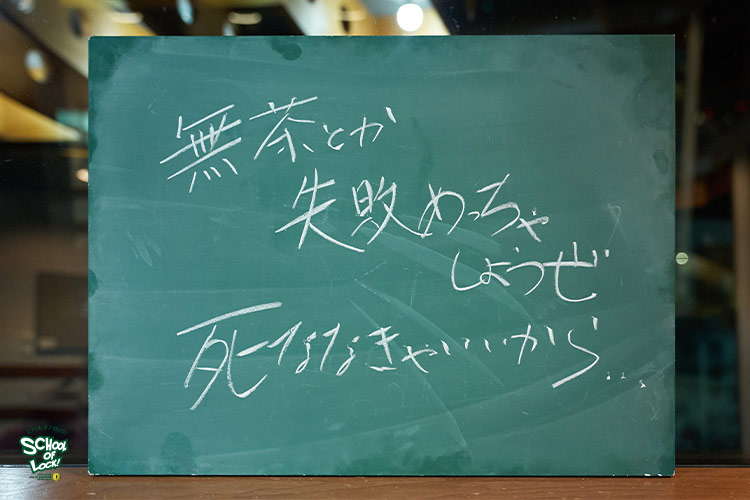 無茶とか
失敗めっちゃ
しようぜ
死ななきゃいいから...
SCHOOL
OF
LOCK!